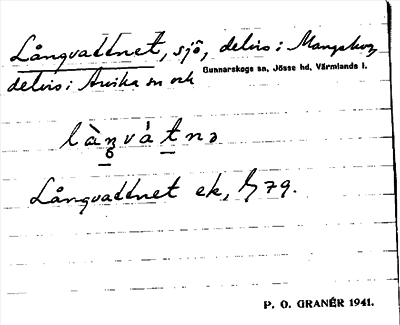 Långvattnet, sjö, delvis i Mangskog,
delvis i Arvika sn och Gunnarskogs sn, Jösse hd, Värmlands l.
Långvattnet ek,
P. O. GRANÉR 1941.